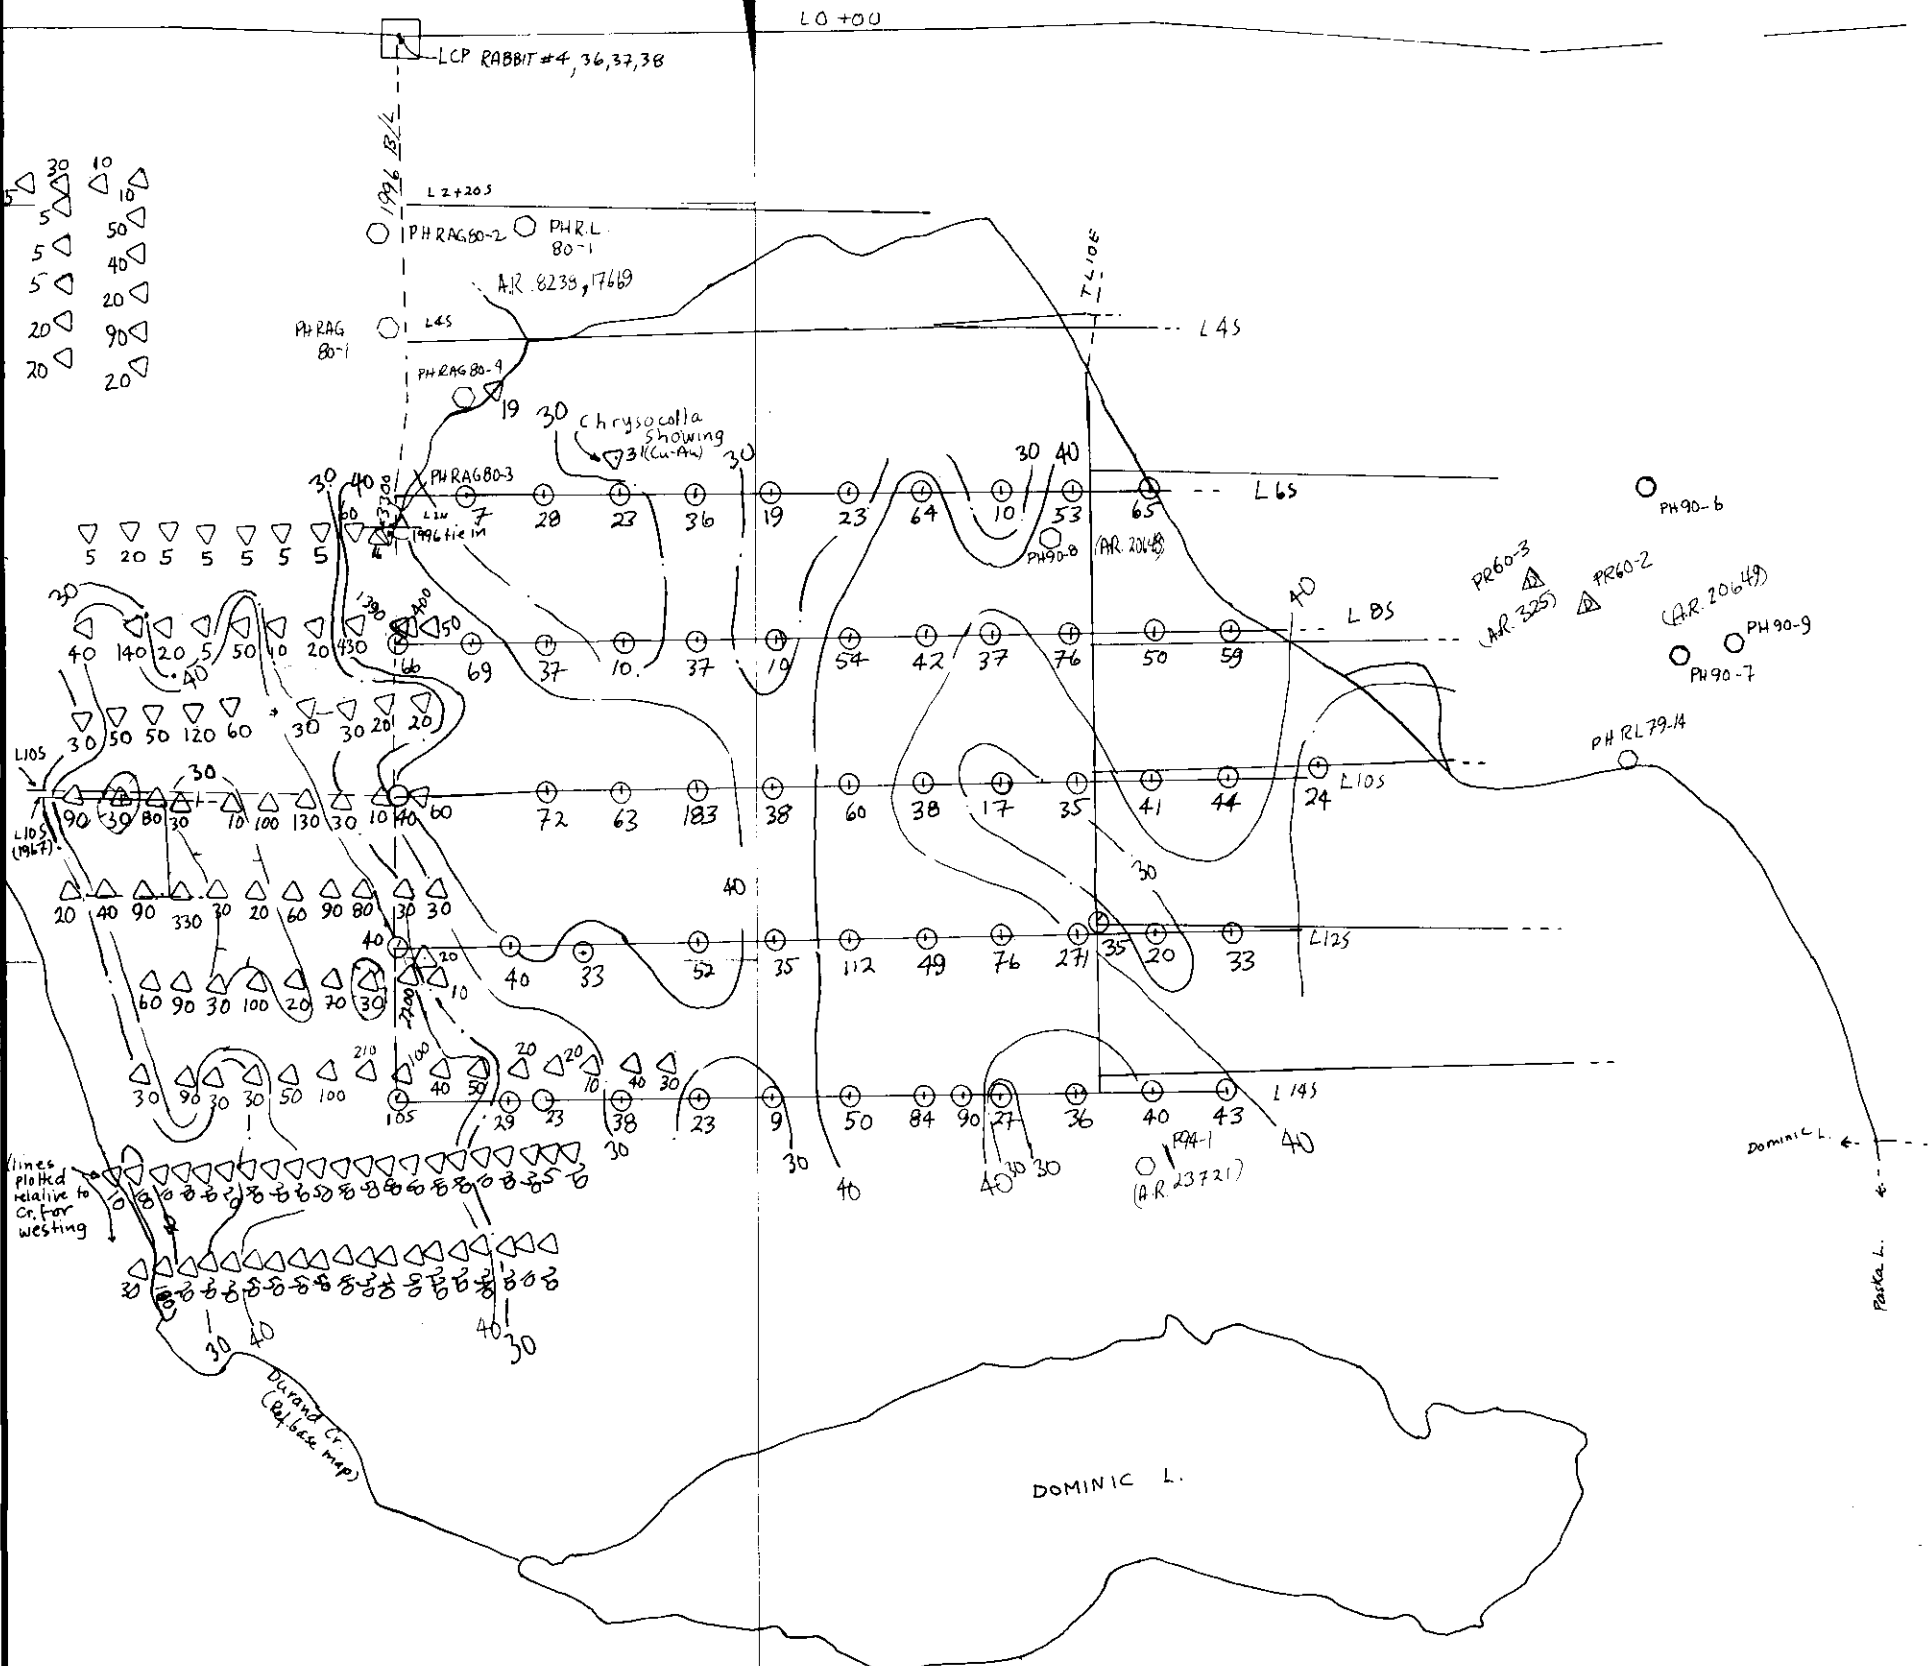 L0+00
LCP RABBIT #4, 36, 37, 38
1996 B/L
30 10
5
10
5 50
5 40
5 20
20 90
20 20
L2+20S
PHRAG80-2
PHR.L.
80-1
A.R. 8238, 17669
TL10E
PHRAG
80-1
L4S
L4S
PHRAG80-4
19
30
Chrysocolla
Showing
31 (Cu-Au)
30
30 40
PHRAG80-3
30 40
3700
60
L2N
1996 tie in
7 28 23 36 19 23 64 10 53 65
L6S
PH90-6
5 20 5 5 5 5 5
PH90-8
(A.R. 20648)
PR60-3
(A.R. 325)
PR60-2
(A.R. 20649)
PH90-9
PH90-7
30
1390
400
50
40
L8S
40 140 20 5 50 10 20 430
66 69 37 10 37 19 54 42 37 76 50 59
40
30 50 50 120 60 30 30 20 20
PHRL79-14
L10S
30
90 30 80 30 10 100 130 30 10 40 60
72 63 183 38 60 38 17 35 41 44 24
L10S
L10S
(1967)
30
40
20 40 90 330 30 20 60 90 80 30 30
40
20
40 33 52 35 112 49 76 271 35 20 33
L12S
60 90 30 100 20 70 30 2200 10
210 100 20 20
30 90 30 30 50 100 40 50 10 40 30
105 29 23 38 23 9 50 84 90 27 36 40 43
L14S
30
30
40
40 30 30
40
P94-1
(A.R. 23721)
Dominic L.
Paska L.
(lines
plotted
relative to
Cr. for
westing
10
30
30 40
40 30
Durand Cr.
(Ref. base map)
DOMINIC L.